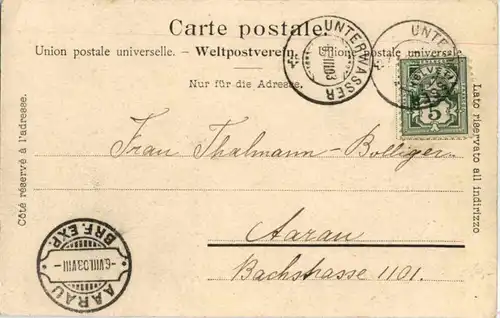 Carte postale.
Union postale universelle. — Weltpostverein. — Unione postale universale
Nur für die Adresse.
UNTERWASSER
VIII 03
UNTERWASSER
HELVETIA
5
Côté réservé à l'adresse.
Lato riservato all indirizzo
Frau Thalmann-Bolliger
Aarau
Bachstrasse 1101.
AARAU
6.VIII.03.VIII-
BRF.EXP.